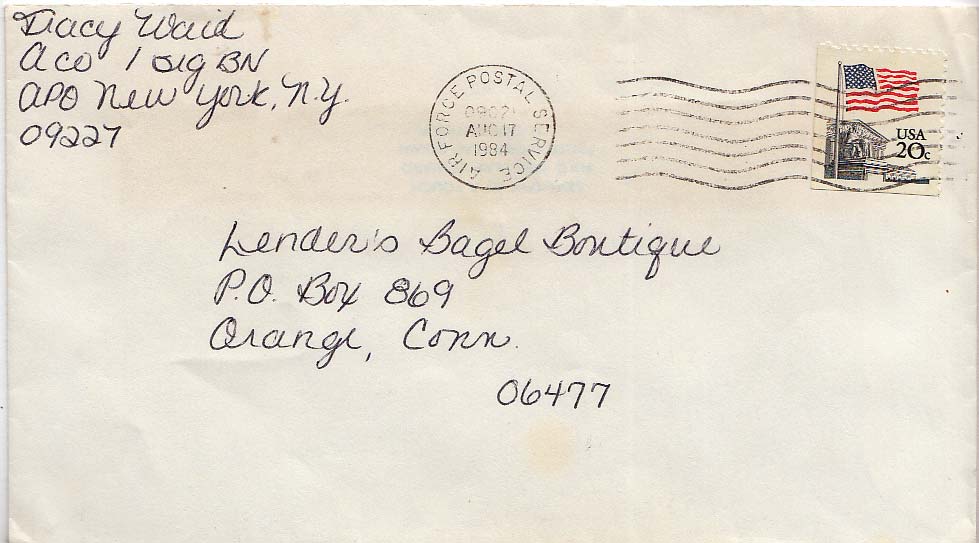 Tracy Waid
A Co 1 Sig BN
APO New York, N.Y.
09227
AIR FORCE POSTAL SERVICE
AUG 17
1984
USA
20c
Lender's Bagel Boutique
P.O. Box 869
Orange, Conn.
06477